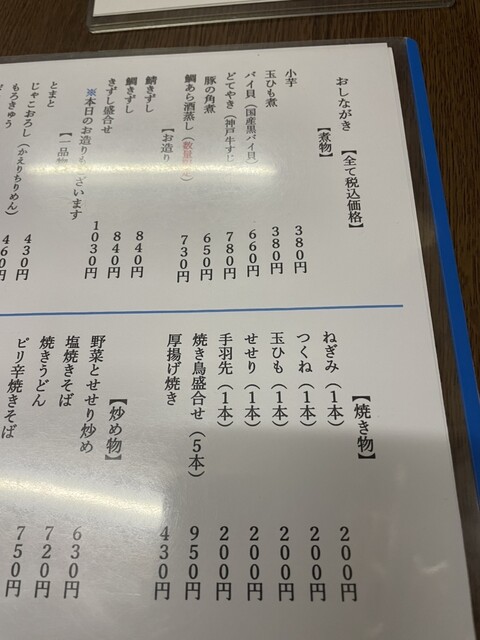 おしながき 【全て税込価格】
【煮物】
小芋 380円
玉ひも煮 380円
バイ貝(国産黒バイ貝) 660円
どてやき(神戸牛すじ) 780円
豚の角煮 650円
鯛あら酒蒸し(数量限定) 730円
【お造り】
鯖きずし 840円
鯛きずし 840円
きずし盛合せ 1030円
※本日のお造りもございます
【一品物
とまと 430円
じゃこおろし(かえりちりめん) 460円
もろきゅう
【焼き物】
ねぎみ(1本) 200円
つくね(1本) 200円
玉ひも(1本) 200円
せせり(1本) 200円
手羽先(1本) 200円
焼き鳥盛合せ(5本) 950円
厚揚げ焼き 430円
【炒め物】
野菜とせせり炒め 630円
塩焼きそば 720円
焼きうどん 750円
ピリ辛焼きそば